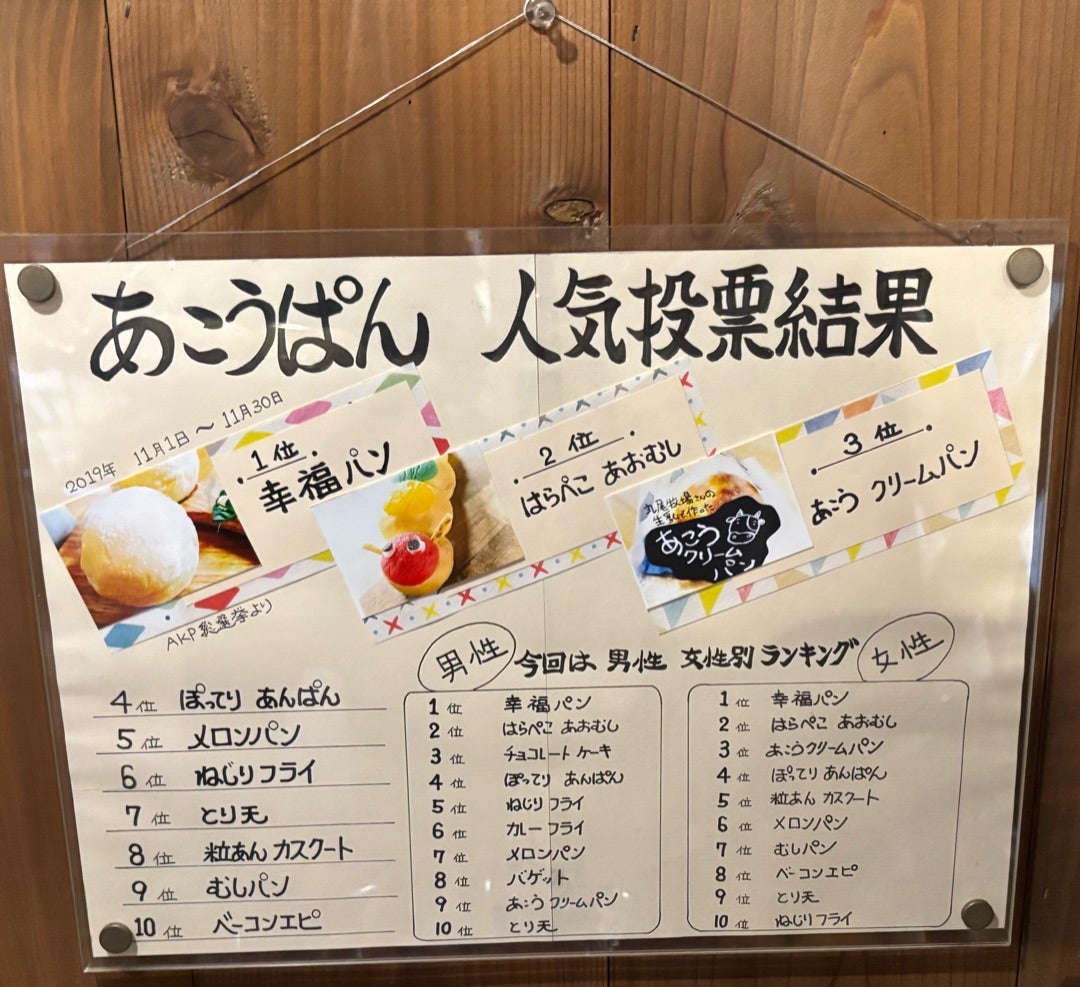 あこうぱん 人気投票結果
2019年 11月1日 〜 11月30日
1位.
幸福パン
2位.
はらぺこ あおむし
3位.
あこう クリームパン
丸尾牧場さんの
生乳で作った
あこう
クリーム
パン
AKP総選挙より
男性 今回は 男性 女性別 ランキング 女性
4位 ぽってり あんぱん
5位 メロンパン
6位 ねじりフライ
7位 とり天
8位 粒あん カスクート
9位 むしパン
10位 ベーコンエピ
1位 幸福パン
2位 はらぺこ あおむし
3位 チョコレートケーキ
4位 ぽってり あんぱん
5位 ねじりフライ
6位 カレーフライ
7位 メロンパン
8位 バゲット
9位 あこうクリームパン
10位 とり天
1位 幸福パン
2位 はらぺこ あおむし
3位 あこうクリームパン
4位 ぽってり あんぱん
5位 粒あん カスクート
6位 メロンパン
7位 むしパン
8位 ベーコンエピ
9位 とり天
10位 ねじりフライ